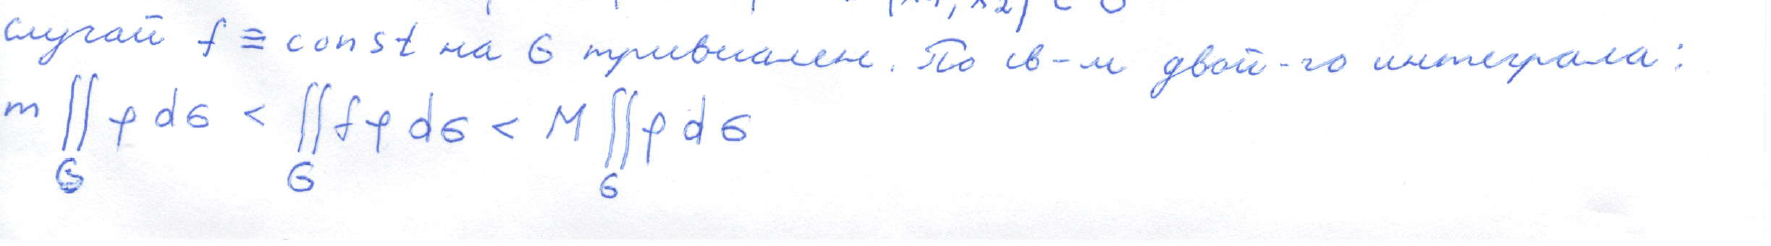 случай f ≡ const на G тривиален. По св-м двой-го интеграла:
m ∬ φ dσ < ∬ fφ dσ < M ∬ φ dσ
G G G